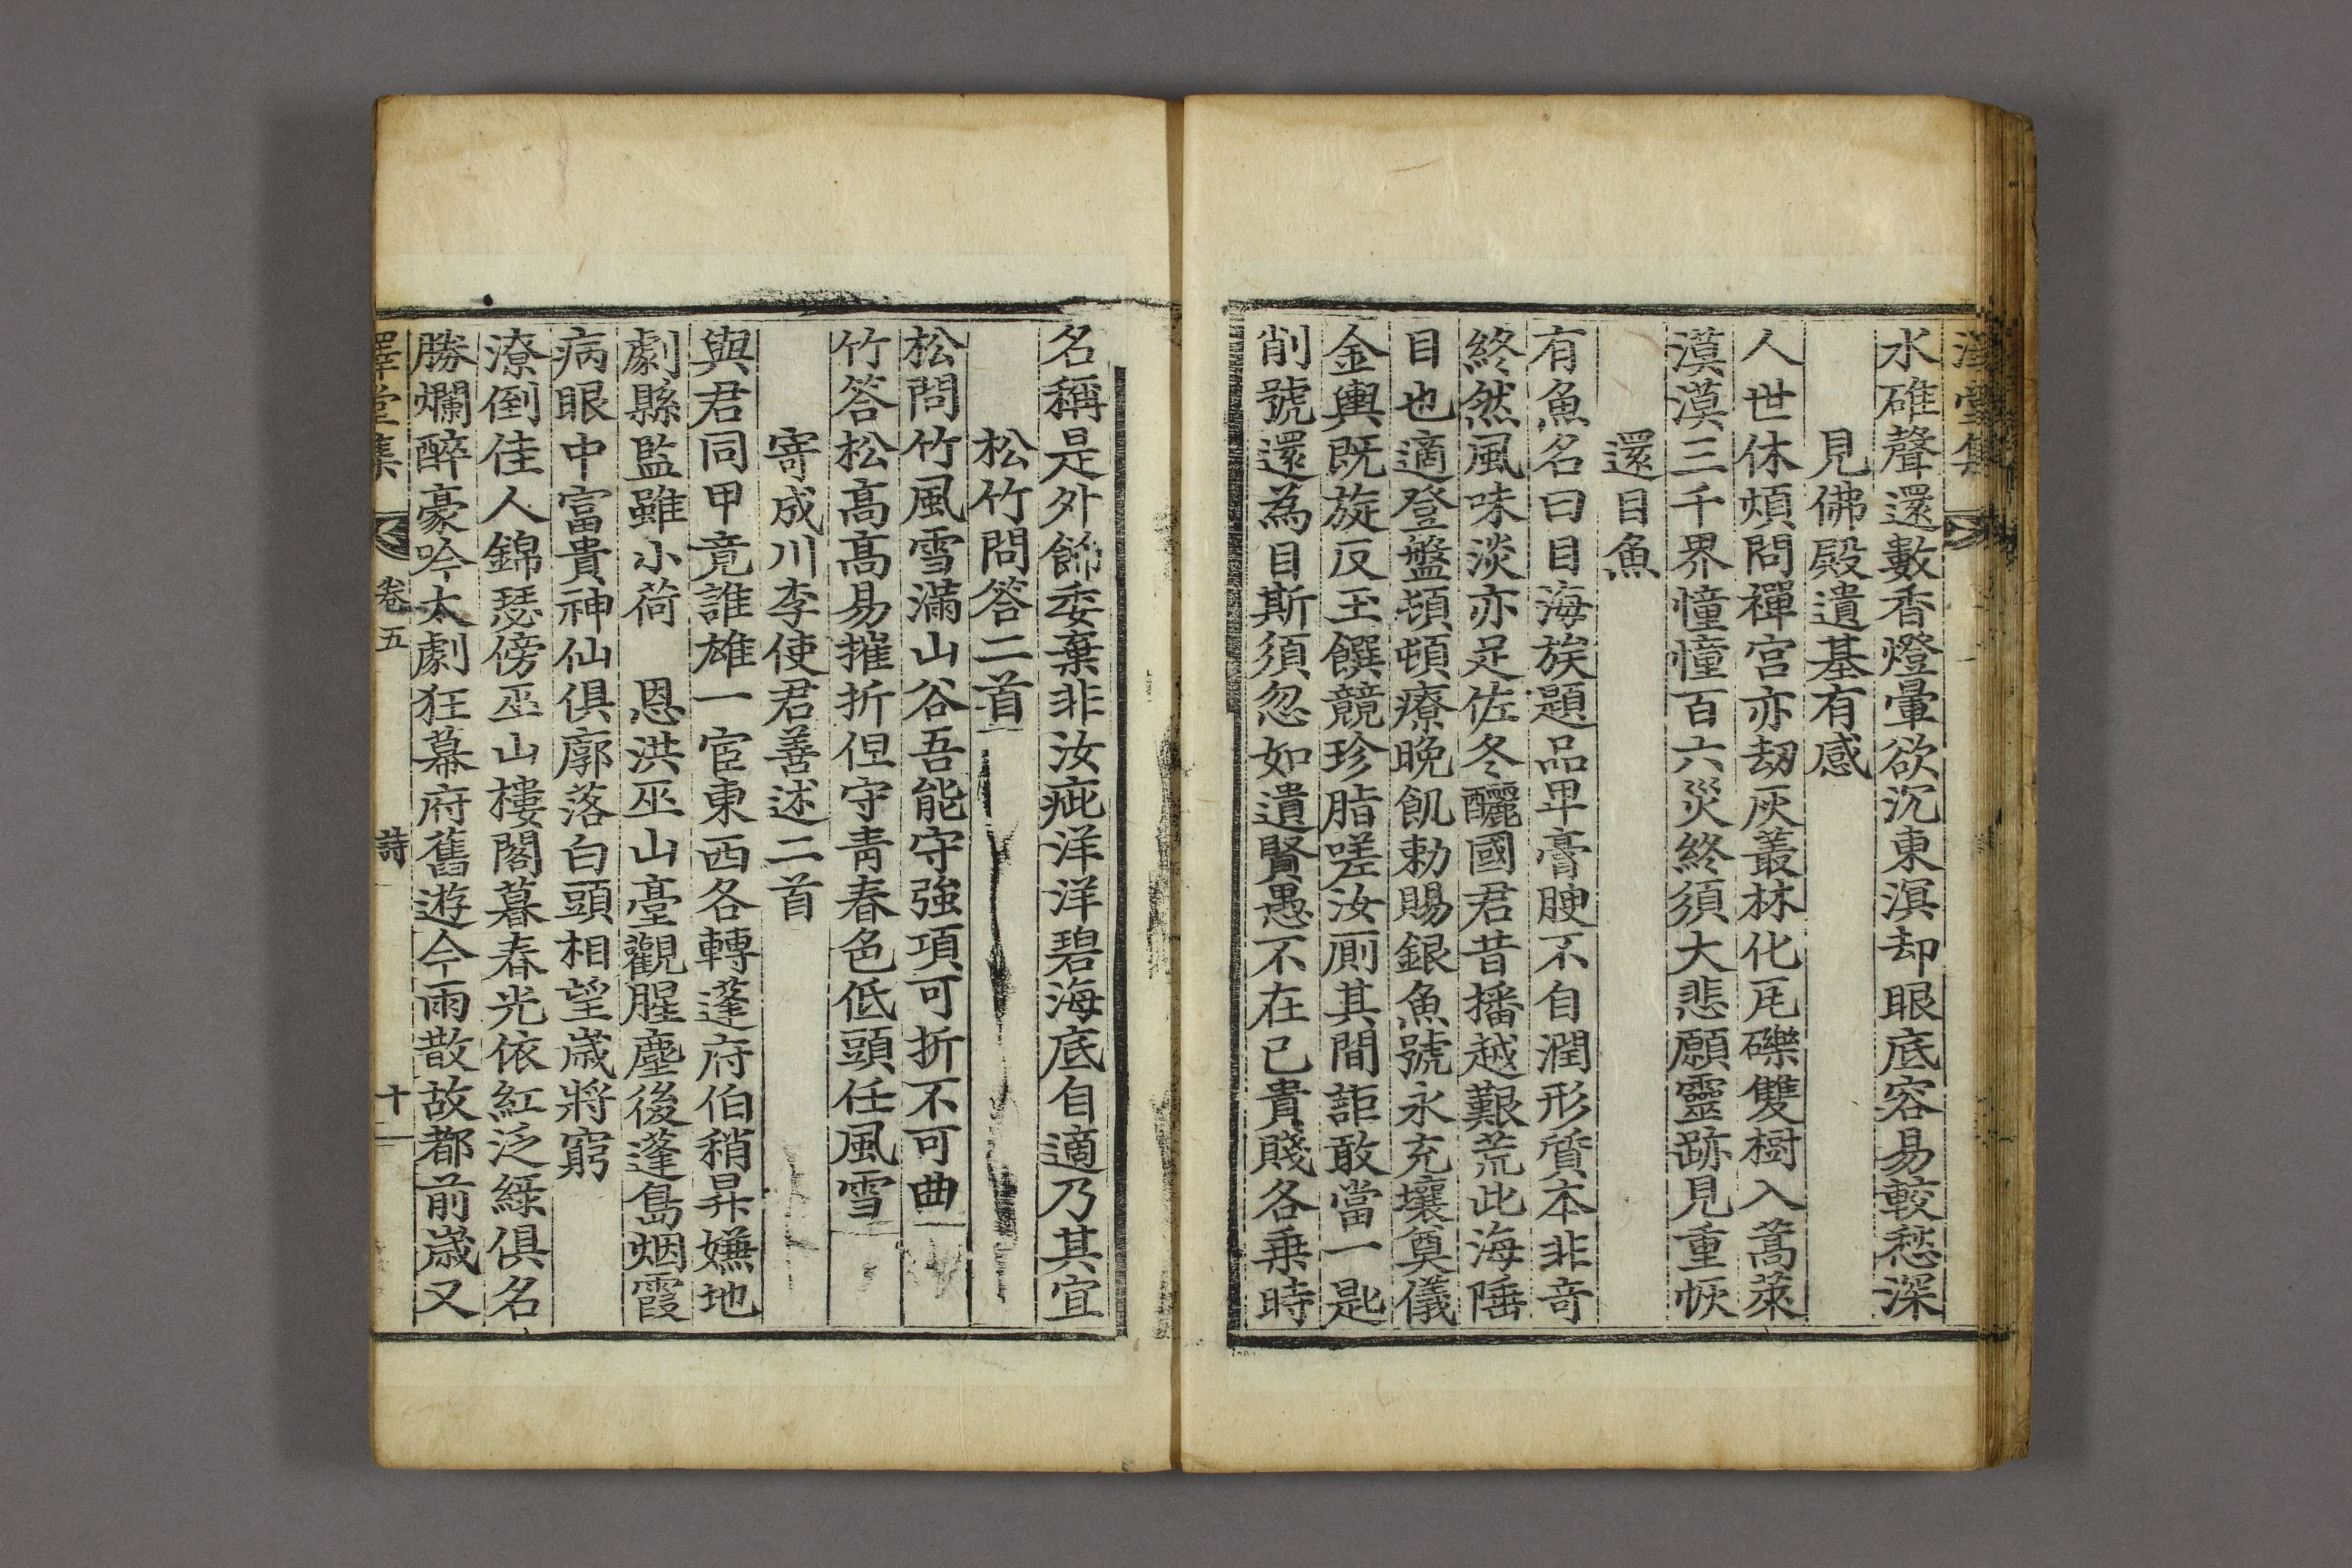 澤堂集
水碓聲還數香燈暈欲沉東溟却眼底容易較愁深
見佛殿遺基有感
人世休煩問禪宮亦刼灰叢林化瓦礫雙樹入蒿萊
漠漠三千界憧憧百六災終須大悲願靈跡見重恢
還目魚
有魚名曰目海族題品卑膏腴不自潤形質本非奇
終然風味淡亦足佐冬釃國君昔播越艱荒此海陲
目也適登盤頓頓療晚飢勅賜銀魚號永充壤奠儀
金輿既旋反玉饌競珍脂嗟汝厠其間詎敢當一匙
削號還為目斯須忽如遺賢愚不在已貴賤各乗時
名稱是外飾委棄非汝疵洋洋碧海底自適乃其宜
松竹問答二首
松問竹風雪滿山谷吾能守強項可折不可曲
竹答松高高易摧折但守靑春色低頭任風雪
寄成川李使君善述二首
與君同甲竟誰雄一宦東西各轉蓬府伯稍昇嫌地
劇縣監雖小荷　恩洪巫山臺觀腥塵後蓬島烟霞
病眼中富貴神仙俱廓落白頭相望歲將窮
潦倒佳人錦瑟傍巫山樓閣暮春光依紅泛綠俱名
勝爛醉豪吟太劇狂幕府舊遊今雨散故都前歲又
澤堂集　卷五　詩　十